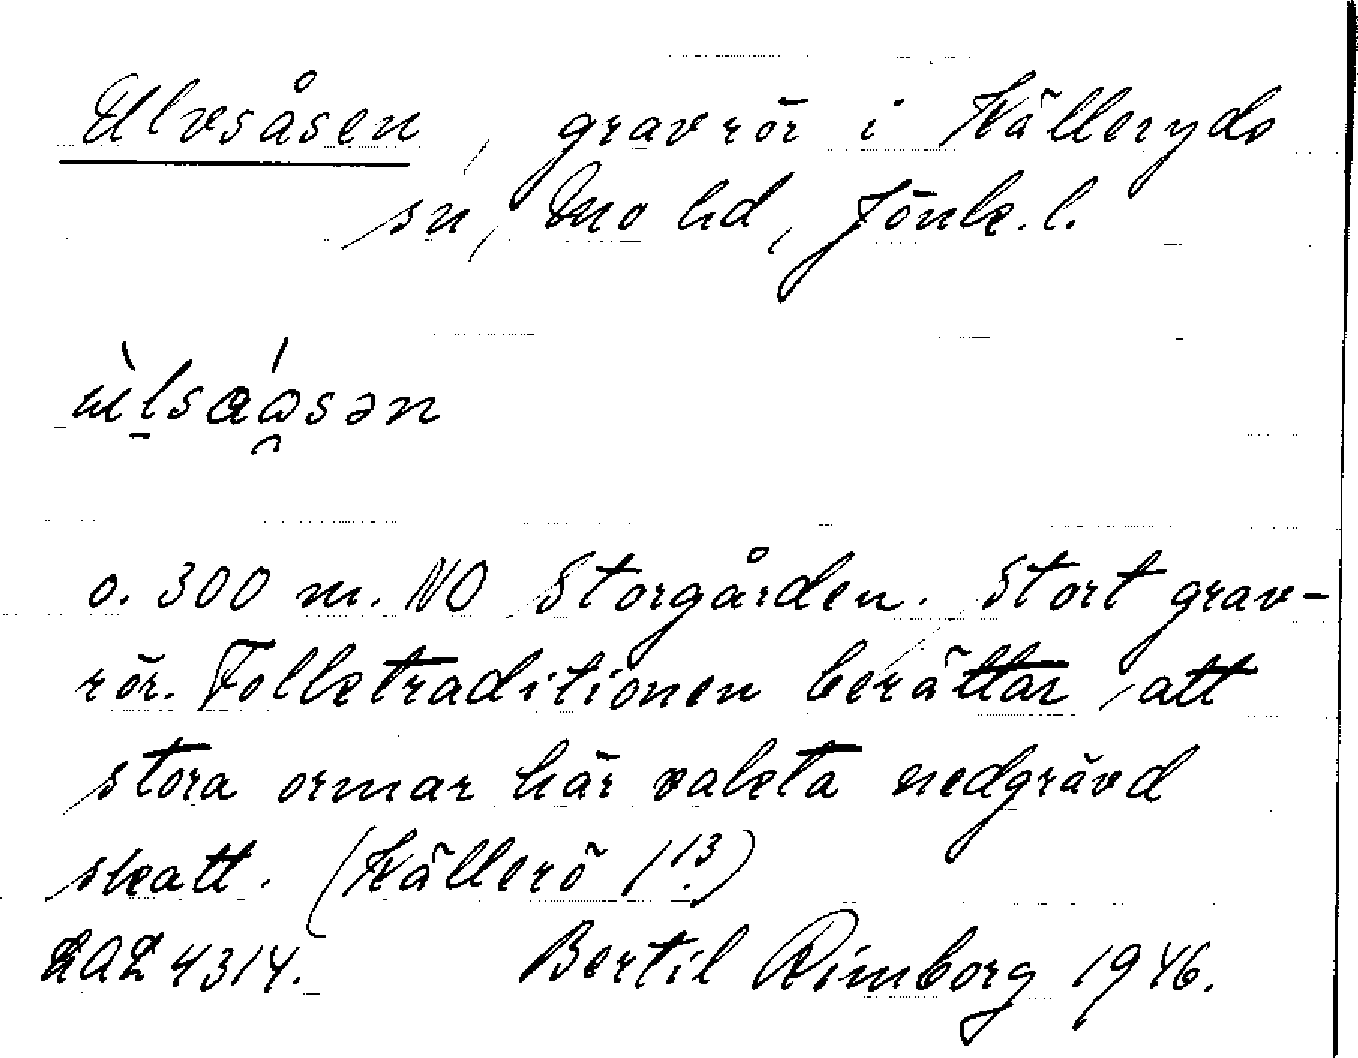 Ulvsåsen, gravrör i Källeryds
sn, Mo hd, Jönk. l.
o. 300 m. NO Storgården. Stort grav-
rör. Folktraditionen berättar, att
stora ormar här vakta nedgrävd
skatt. (Källerö 1 13)
4314. Bertil Rimborg 1946.